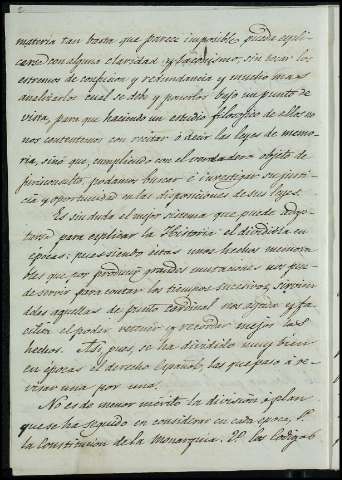 2
materia tan basta que parece imposible pueda espli-
carse con alguna claridad y laconismo, sin tocar los
estremos de confusion y redundancia y mucho mas
analizarlos cual se debe y ponerlos bajo un punto de
vista, para que haciendo un estudio filosofico de ellos no
nos contentemos con recitar ó decir las leyes de memo-
ria, sinó que, cumpliendo con el verdadero objeto de
jurisconsulto, podamos buscar é investigar su justi-
cia y oportunidad en las disposiciones de sus leyes.
Es sin duda el mejor sistema que puede adop-
tarse para esplicar la Historia el dividirla en
epocas: pues siendo estas unos hechos memora-
bles que, por producir grandes mutaciones nos pue-
de servir para contar los tiempos sucesivos, sirvien-
doles aquellas de punto cardinal nos ayuda y fa-
cilita el poder retener y recordar mejor los
hechos. Asi, pues, se ha dividido muy bien
en épocas el derecho Español, las que paso á re-
visar una por una.
No es de menor mérito la division ó plan
que se ha seguido en considerar en cada epoca, 1º.
la Constitucion de la Monarquia. 2º. los Codigos